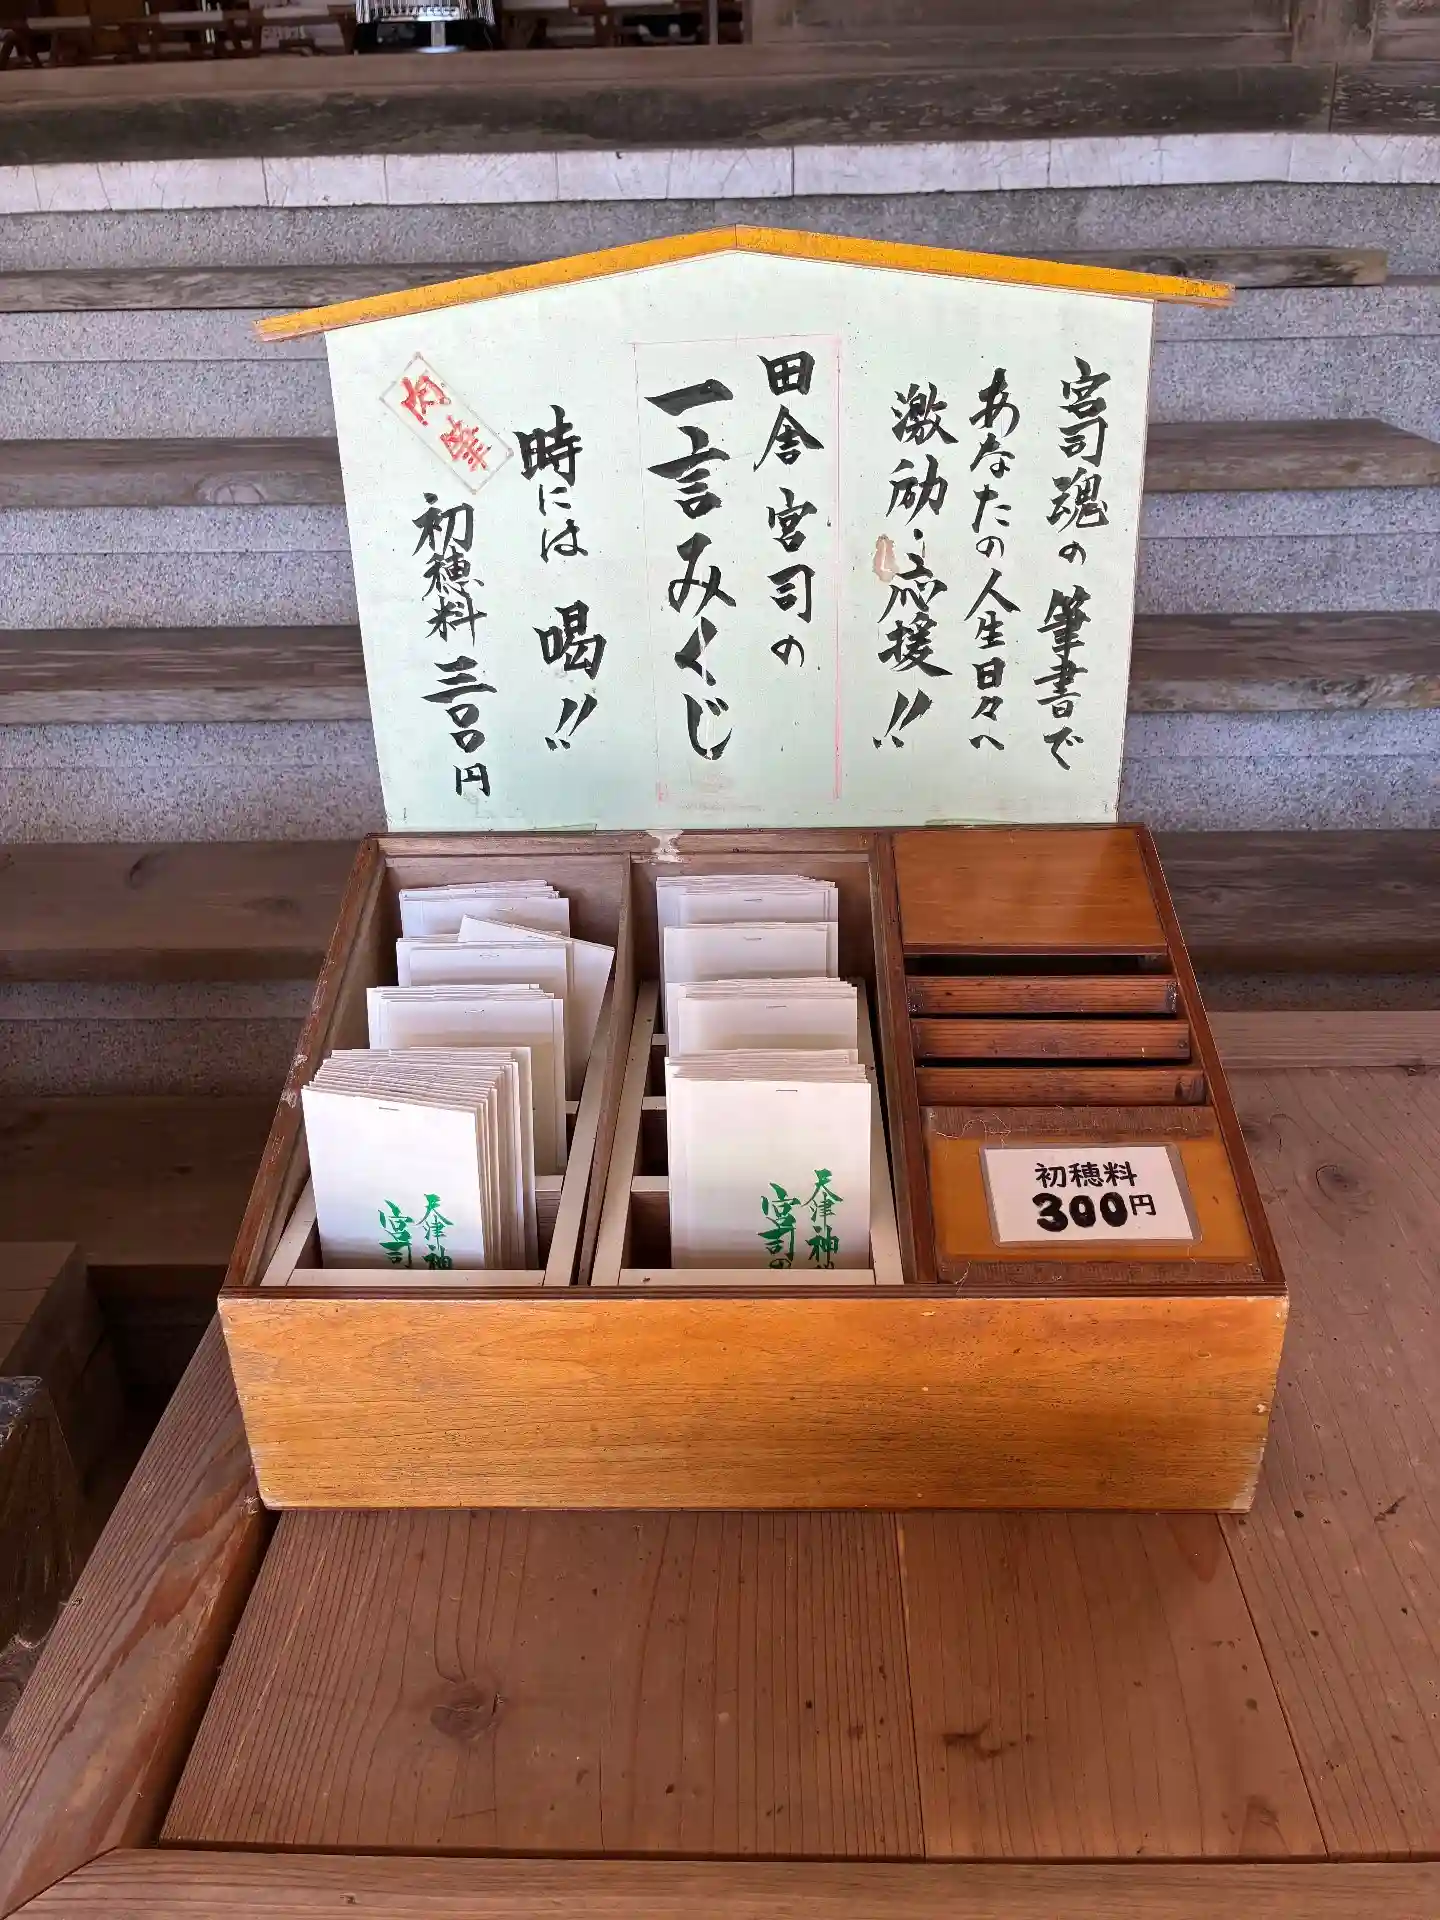 宮司魂の筆書で
あなたの人生日々へ
激励・応援!!
田舎宮司の
一言みくじ
時には 喝!!
肉筆
初穂料 三〇〇円
天津神
宮司
天津神
宮司の
初穂料
300円